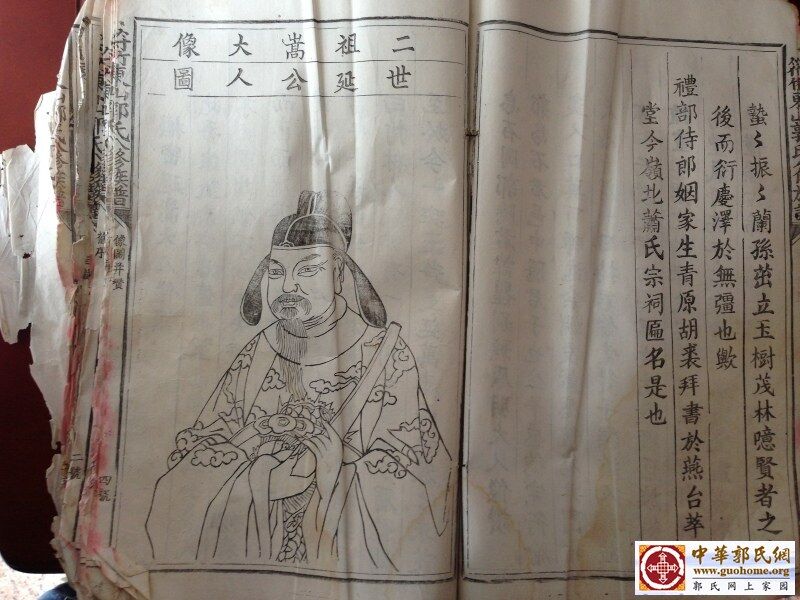 蟄〻振〻蘭孫茁立玉樹茂林噫賢者之
後而衍慶澤於無疆也歟
禮部侍郎姻家生青原胡裘拜書於燕台萃
堂今嶺北蕭氏宗祠匾名是也
二世
祖延
嵩公
大人
像圖
郭氏
修族譜
像圖并贊
四號
中華郭氏網
www.guohome.org
郭氏网上家园